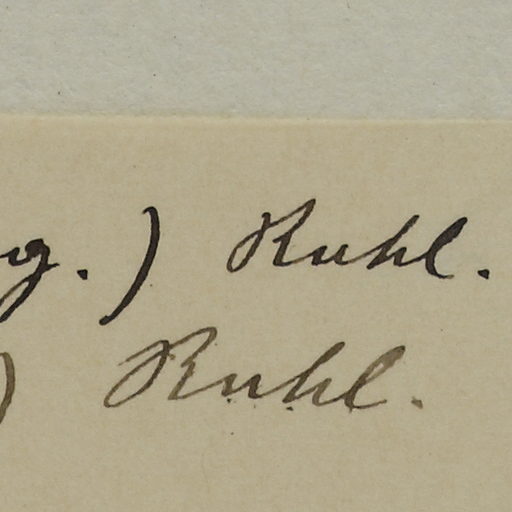 g.) Kuhl.
) Kuhl.